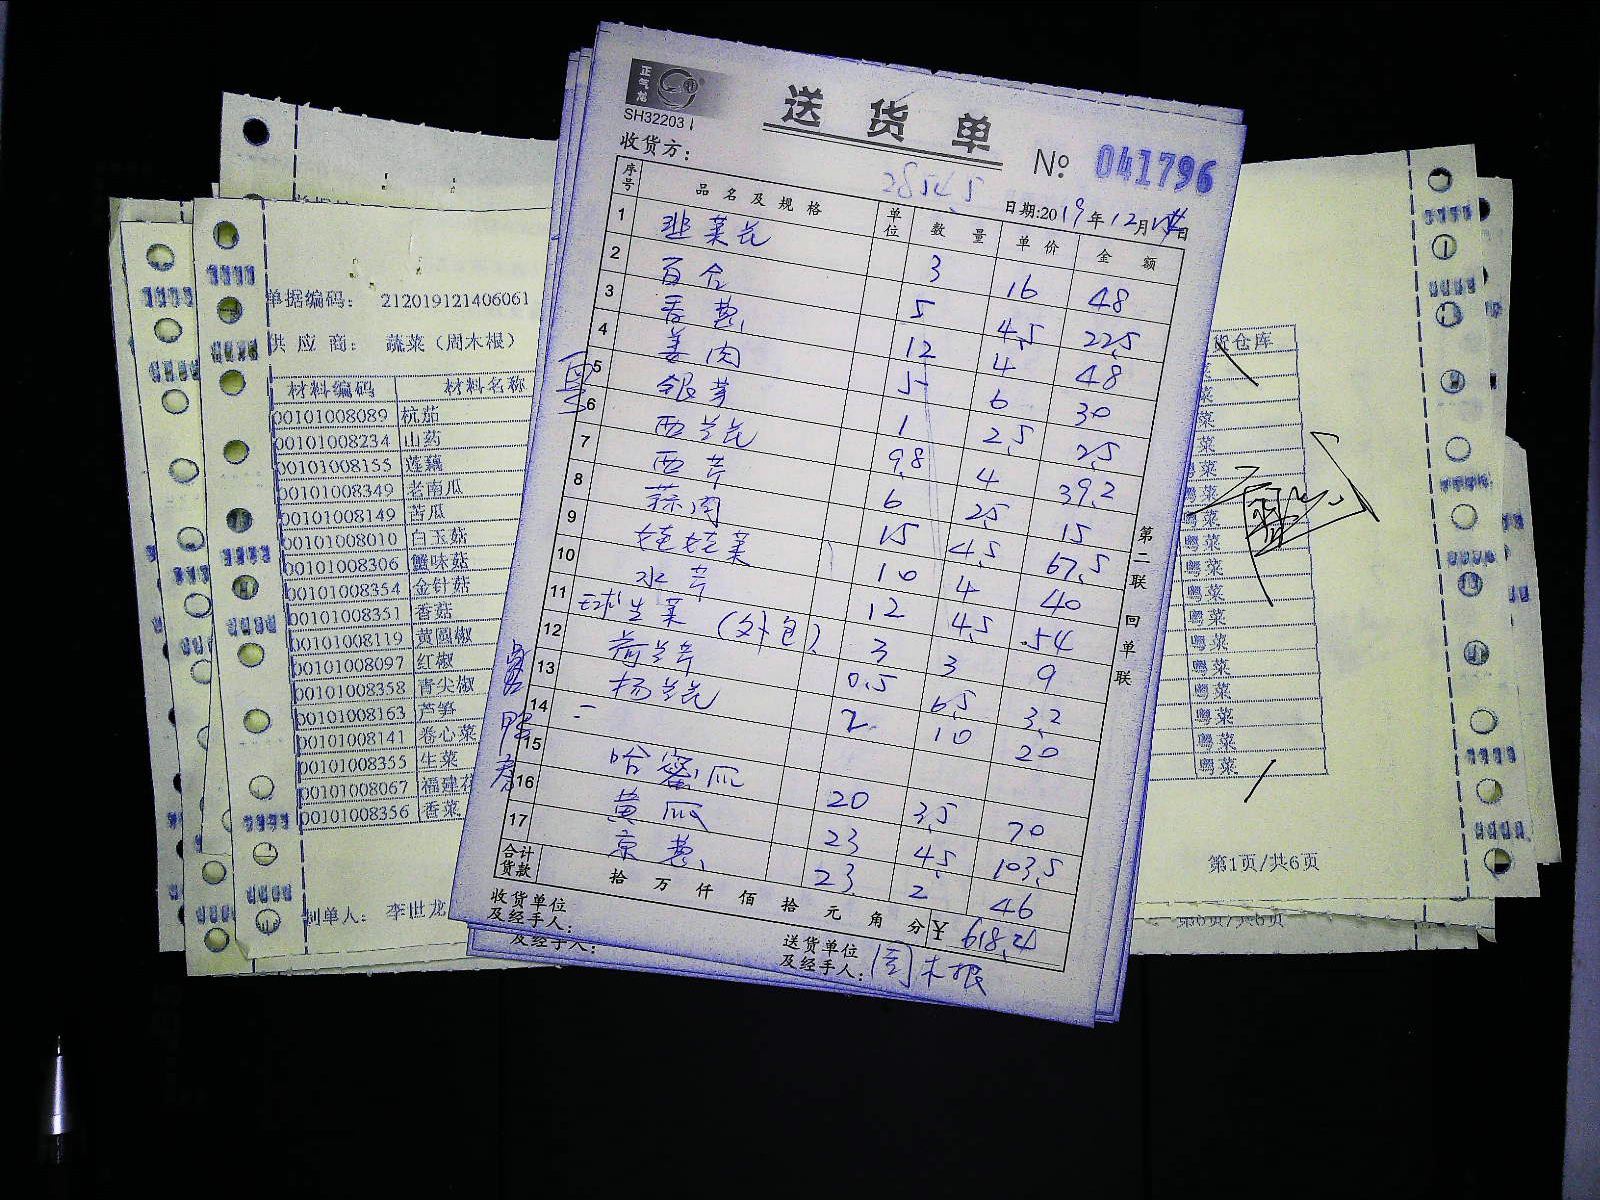 正气龙
SH32203
送货单
No 041796
收货方：
28545
日期:2019年12月14日
序号 品名及规格 单位 数量 单价 金额
1 韭菜花 3 16 48
2 百合 5 4.5 22.5
3 香葱 12 4 48
4 姜肉 5 6 30
5 银芽 1 2.5 2.5
6 西兰花 9.8 4 39.2
7 西芹 6 2.5 15
8 蒜肉 15 4.5 67.5
9 娃娃菜 10 4 40
10 水芹 12 4.5 54
11 球生菜（外包） 3 3 9
12 荷兰芹 0.5 6.5 3.2
13 杨兰花 2 10 20
14 二
15 哈蜜瓜 20 3.5 70
16 黄瓜 23 4.5 103.5
17 京葱 23 2 46
合计货款 拾万仟佰拾元角分 ¥ 618.24
收货单位及经手人：
送货单位及经手人：周木根
第二联 回单联
及经手人：
单据编码： 212019121406061
供应商： 蔬菜（周木根）
材料编码 材料名称
00101008089 杭茄
00101008234 山药
00101008155 莲藕
00101008349 老南瓜
00101008149 苦瓜
00101008010 白玉菇
00101008306 蟹味菇
00101008354 金针菇
00101008351 香菇
00101008119 黄圆椒
00101008097 红椒
00101008358 青尖椒
00101008163 芦笋
00101008141 卷心菜
00101008355 生菜
00101008067 福建花
00101008356 香菜
制单人： 李世龙
货仓库
菜
菜
菜
菜
粤菜
粤菜
粤菜
粤菜
粤菜
粤菜
粤菜
粤菜
粤菜
粤菜
粤菜
粤菜
粤菜
第1页/共6页
第6页/共6页